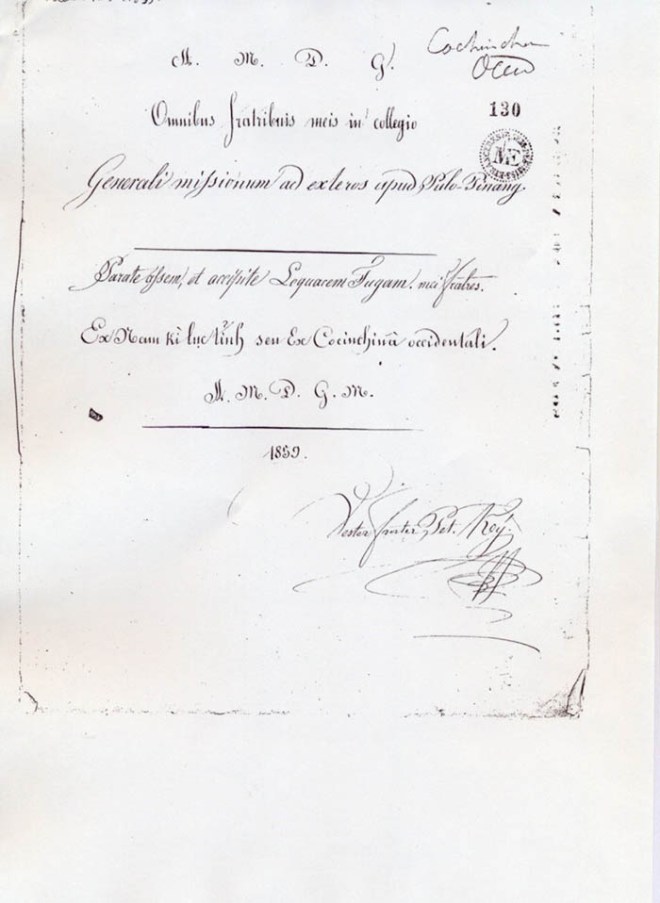 Cochinchin
Occid
A. M. D. G.
130
Omnibus fratribuis meis in collegio
ME
Generali missionum ad exteros apud Pulo-Pinang.
Parate assem, et accipite Loquacem Fugam. mei fratres.
Ex Nam Kì lục tỉnh seu Ex Cocinchinâ occidentali.
A. M. D. G. M.
1859.
Vester frater, Pet. Key.